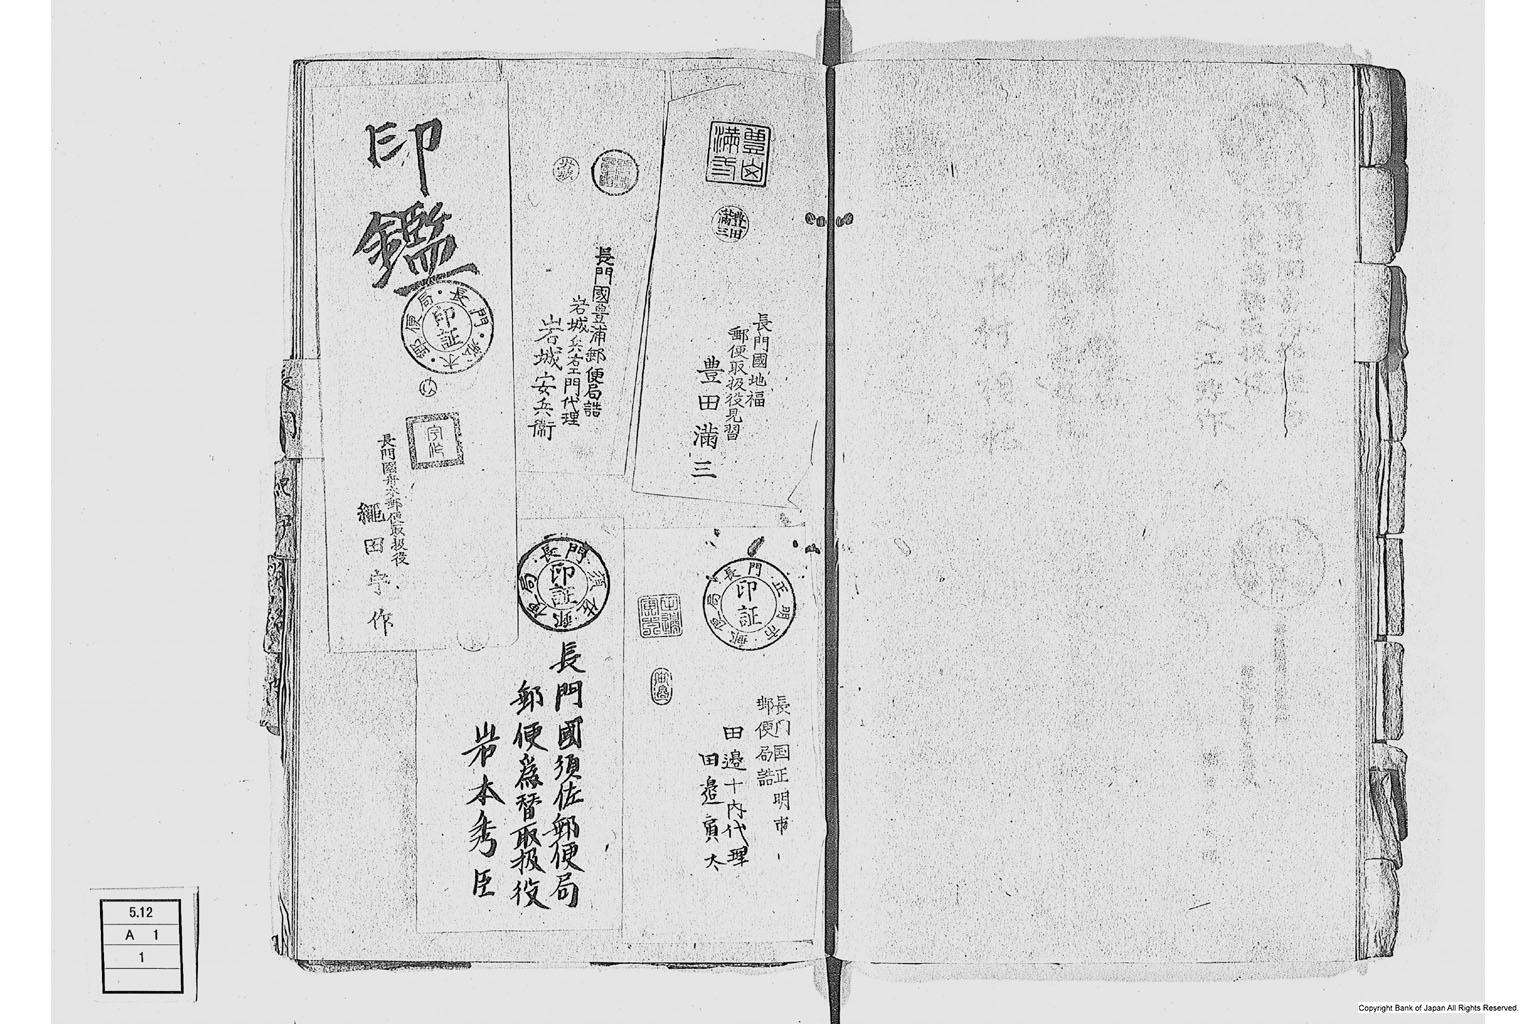 豊田
満三
豊田
満三
長門國地福
郵便取扱役見習
豊田満三
長門國豊浦郵便局詰
岩城兵右エ門代理
岩城安兵衞
印鑑
長門・舩木・郵便局・
印証
宇作
長門國舟木郵便取扱役
繩田宇作
長門・正明市・郵便局・
印証
田邉
長門国正明市
郵便局詰
田邉十内代理
田邉寅太
長門・須佐・郵便局・
印証
長門國須佐郵便局
郵便爲替取扱役
岩本秀臣
長門
紀伊
5.12
A 1
1
Copyright Bank of Japan All Rights Reserved.